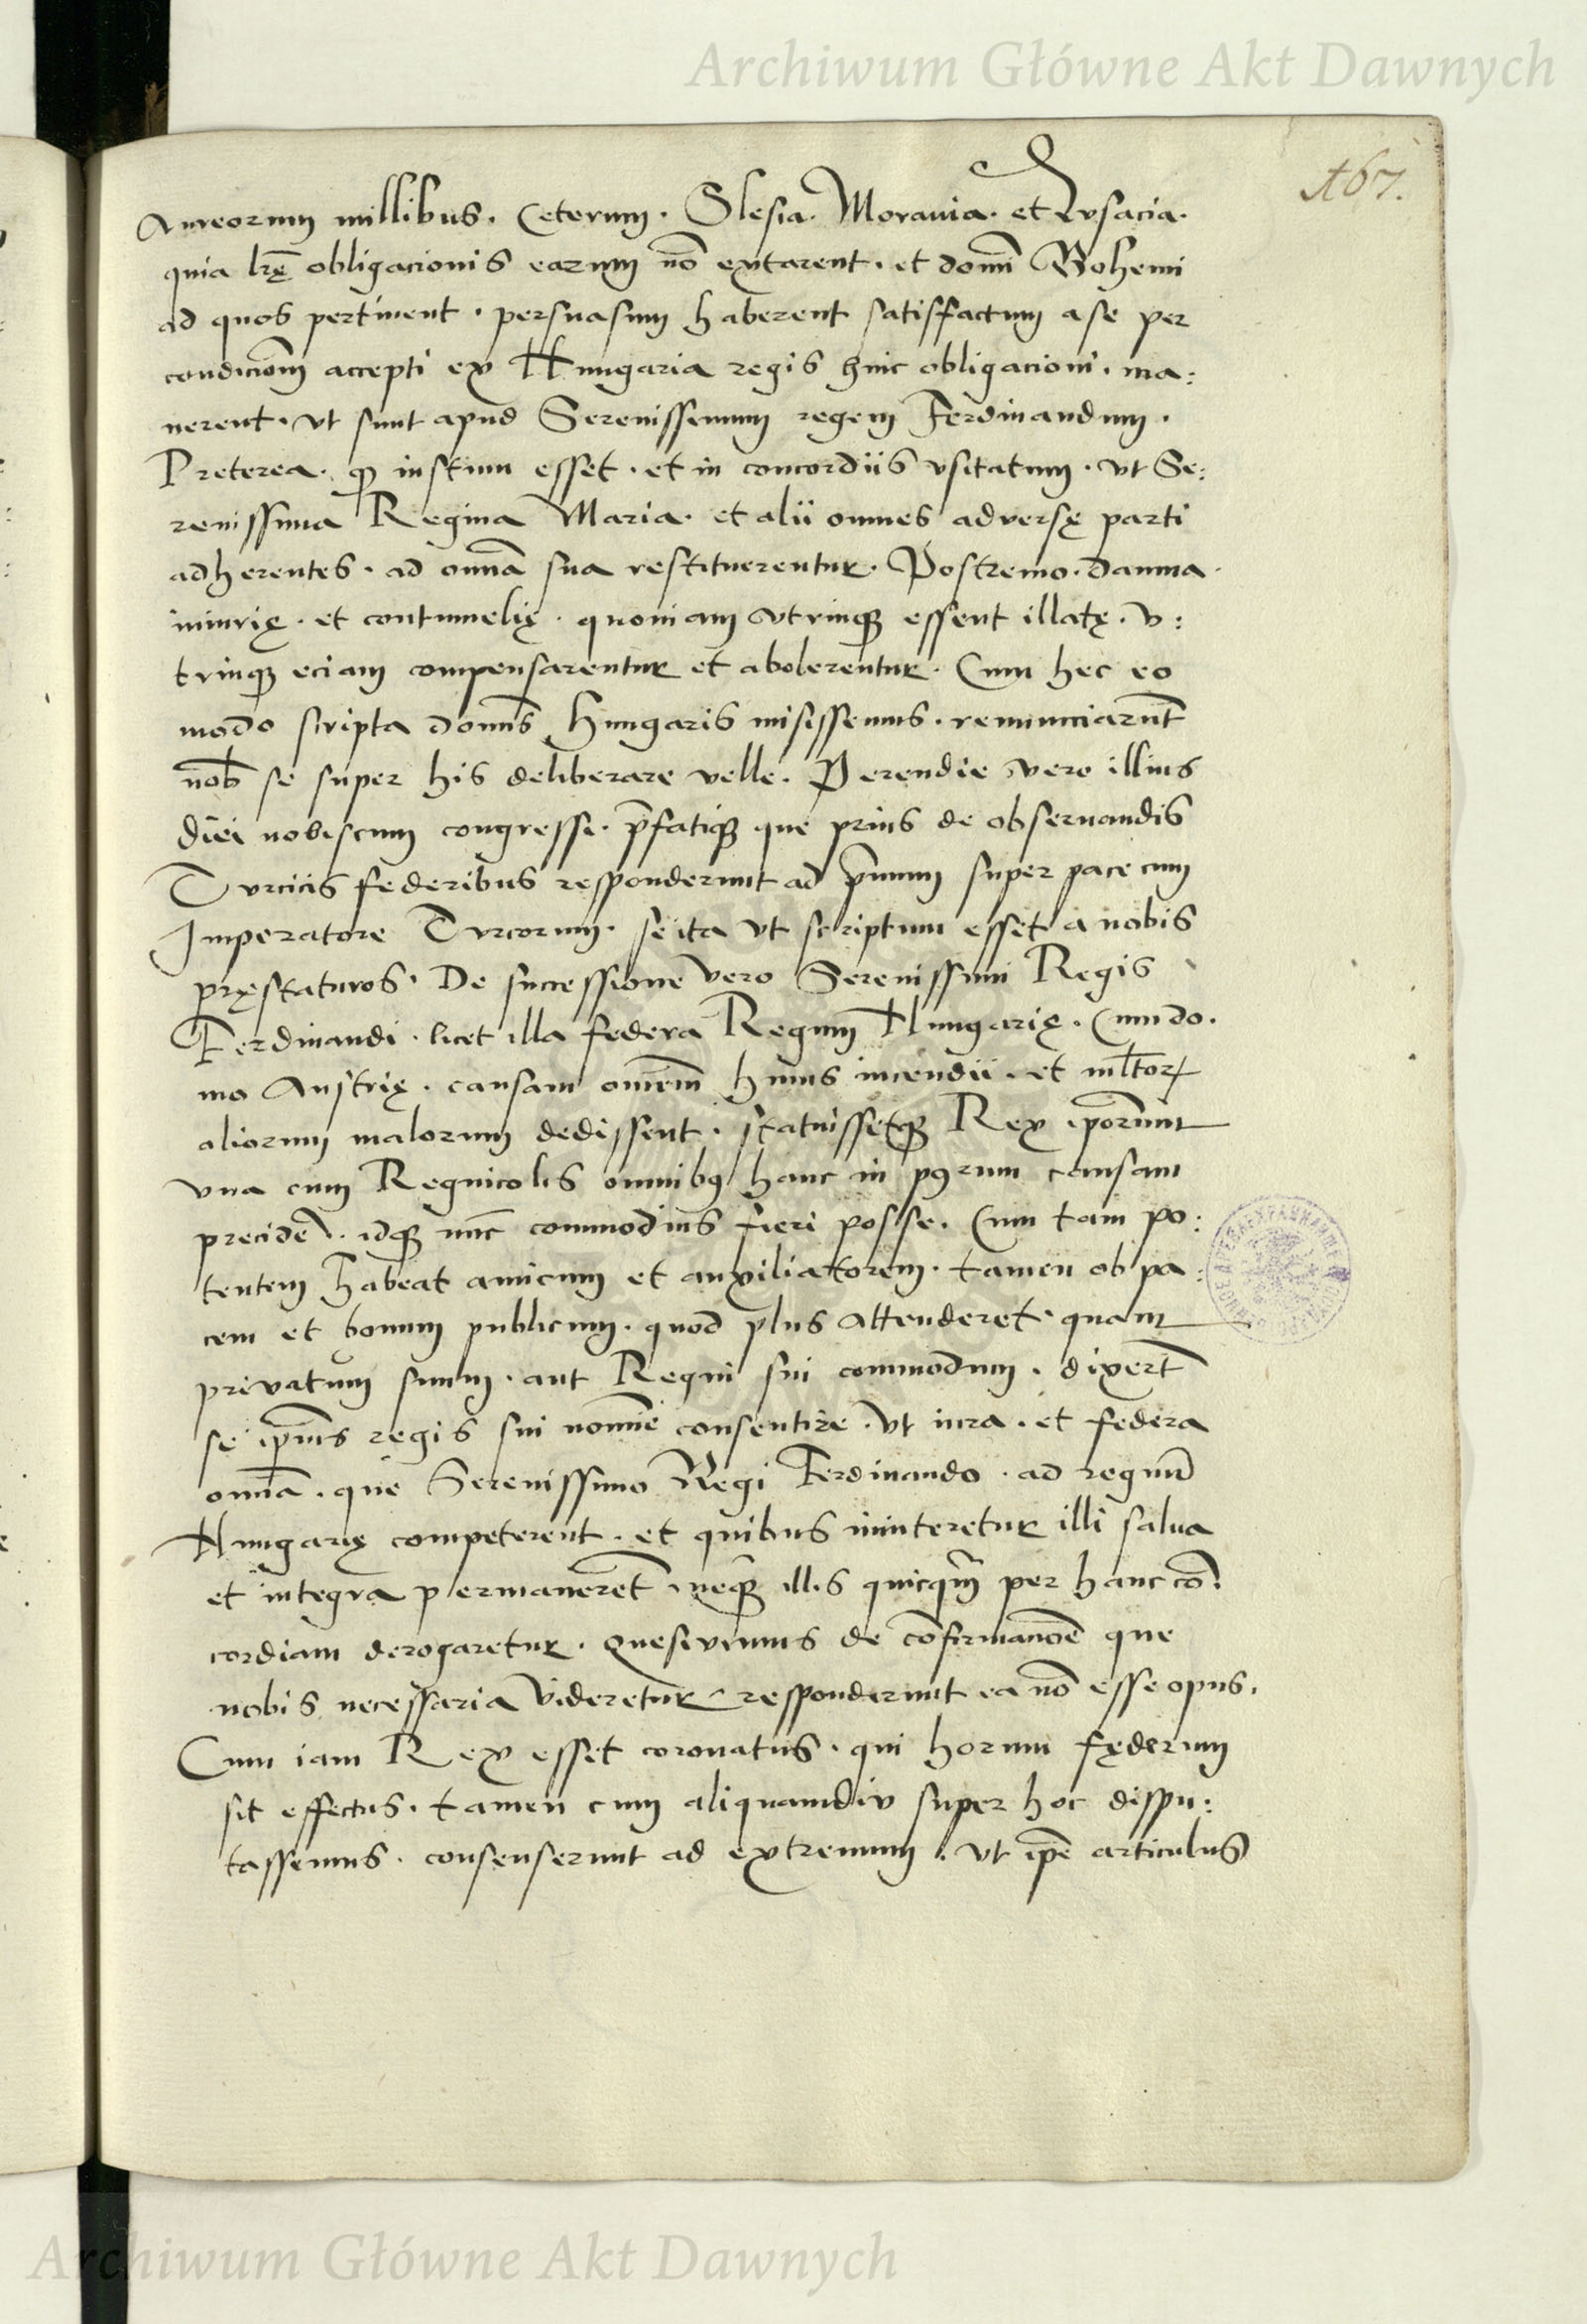 Archiwum Główne Akt Dawnych
167.
Aureorum millibus. Ceterum. Slesia. Morauia. et Lusacia.
quia lrę̄ obligacionis earum nō extarent. et domī Bohemi
ad quos pertinent. persuasum haberent satisffactum a se per
condicionē accepti ex Hungaria regis huic obligacioni. ma:
nerent. vt sunt apud Serenissemum regem Ferdinandum.
Preterea. qꝫ iustum esset. et in concordiis vsitatum. vt Se:
renissima Regina Maria. et alii omnes adversę parti
adherentes. ad omā sua restituerentur. Postremo. damna.
iniurię. et contumelię. quoniam vtrinqꝫ essent illatę. v:
trinqꝫ eciam compensarentur et abolerentur. Cum hec eo
modo scripta domīs Hungaris misissemus. renunciarūt
nob̄ se super his deliberare velle. Perendie vero illius
diei nobiscum congresse. p̄fatiqꝫ que prius de obseruandis
Turcicis federibus responderunt ad p̄mum super pace cum
Imperatore Turcorum. se ita vt scriptum esset a nobis
pręstaturos. De successione vero Serenissimi Regis
Ferdinandi. licet illa federa Regum Hungarię. Cum do.
mo Austrię. causam omnem huius incendii. et ml̄torꝝ
aliorum malorum dedissent. statuissetqꝫ Rex ip̄orum
vna cum Regnicolis omnibꝰ hanc in pꝰrum causam
precidē. idqꝫ nūc commodius fieri posse. Cum tam po:
tentem habeat amicum et auxiliatorem. tamen ob pa:
cem et bonum publicum. quod plus attenderet. quam
privatum suum. aut Regni sui commodum. dixerūt
se ip̄ius regis sui nomīe consentire. vt iura. et federa
omīa. que Serenissimo Regi Ferdinando. ad regnū
Hungarię competerent. et quibus inniteretur illi salua
et integra permanerēt neqꝫ illis quicq̄m per hanc cō:
cordiam derogaretur. Quesivimus de cōfirmacionē que
nobis necessaria videretur responderunt ea nō esse opus.
Cum iam Rex esset coronatus. qui horum fęderum
sit effectus. tamen cum aliquamdiu super hoc dispu:
tassemus. consenserunt ad extremum. vt ip̄e articulus
Archiwum Główne Akt Dawnych